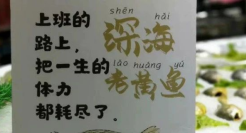 上班的
路上，
把一生的
体力
都耗尽了．
shēn hǎi
深海
lǎo huáng yú
老黄鱼